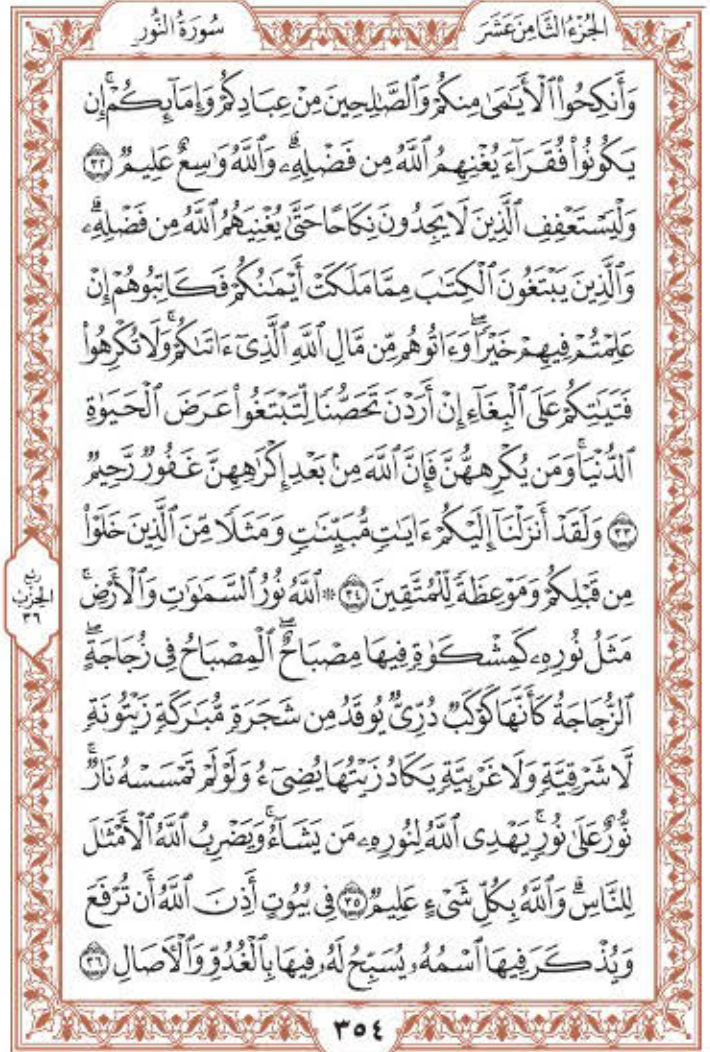 سُورَةُ النُّورِ
الجُزْءُ الثَّامِنَ عَشَرَ
وَأَنكِحُوا۟ ٱلْأَيَـٰمَىٰ مِنكُمْ وَٱلصَّـٰلِحِينَ مِنْ عِبَادِكُمْ وَإِمَآئِكُمْ ۚ إِن
يَكُونُوا۟ فُقَرَآءَ يُغْنِهِمُ ٱللَّهُ مِن فَضْلِهِۦ ۗ وَٱللَّهُ وَٰسِعٌ عَلِيمٌ ٣٢
وَلْيَسْتَعْفِفِ ٱلَّذِينَ لَا يَجِدُونَ نِكَاحًا حَتَّىٰ يُغْنِيَهُمُ ٱللَّهُ مِن فَضْلِهِۦ ۗ
وَٱلَّذِينَ يَبْتَغُونَ ٱلْكِتَـٰبَ مِمَّا مَلَكَتْ أَيْمَـٰنُكُمْ فَكَاتِبُوهُمْ إِنْ
عَلِمْتُمْ فِيهِمْ خَيْرًا ۖ وَءَاتُوهُم مِّن مَّالِ ٱللَّهِ ٱلَّذِىٓ ءَاتَىٰكُمْ ۚ وَلَا تُكْرِهُوا۟
فَتَيَـٰتِكُمْ عَلَى ٱلْبِغَآءِ إِنْ أَرَدْنَ تَحَصُّنًا لِّتَبْتَغُوا۟ عَرَضَ ٱلْحَيَوٰةِ
ٱلدُّنْيَا ۚ وَمَن يُكْرِههُّنَّ فَإِنَّ ٱللَّهَ مِنۢ بَعْدِ إِكْرَٰهِهِنَّ غَفُورٌ رَّحِيمٌ
٣٣ وَلَقَدْ أَنزَلْنَآ إِلَيْكُمْ ءَايَـٰتٍ مُّبَيِّنَـٰتٍ وَمَثَلًا مِّنَ ٱلَّذِينَ خَلَوْا۟
مِن قَبْلِكُمْ وَمَوْعِظَةً لِّلْمُتَّقِينَ ٣٤ ۞ ٱللَّهُ نُورُ ٱلسَّمَـٰوَٰتِ وَٱلْأَرْضِ ۚ
مَثَلُ نُورِهِۦ كَمِشْكَوٰةٍ فِيهَا مِصْبَاحٌ ۖ ٱلْمِصْبَاحُ فِى زُجَاجَةٍ ۖ
ٱلزُّجَاجَةُ كَأَنَّهَا كَوْكَبٌ دُرِّىٌّ يُوقَدُ مِن شَجَرَةٍ مُّبَـٰرَكَةٍ زَيْتُونَةٍ
لَّا شَرْقِيَّةٍ وَلَا غَرْبِيَّةٍ يَكَادُ زَيْتُهَا يُضِىٓءُ وَلَوْ لَمْ تَمْسَسْهُ نَارٌ ۚ
نُّورٌ عَلَىٰ نُورٍ ۗ يَهْدِى ٱللَّهُ لِنُورِهِۦ مَن يَشَآءُ ۚ وَيَضْرِبُ ٱللَّهُ ٱلْأَمْثَـٰلَ
لِلنَّاسِ ۗ وَٱللَّهُ بِكُلِّ شَىْءٍ عَلِيمٌ ٣٥ فِى بُيُوتٍ أَذِنَ ٱللَّهُ أَن تُرْفَعَ
وَيُذْكَرَ فِيهَا ٱسْمُهُۥ يُسَبِّحُ لَهُۥ فِيهَا بِٱلْغُدُوِّ وَٱلْـَٔاصَالِ ٣٦
ربع
الحزب
٣٦
٣٥٤